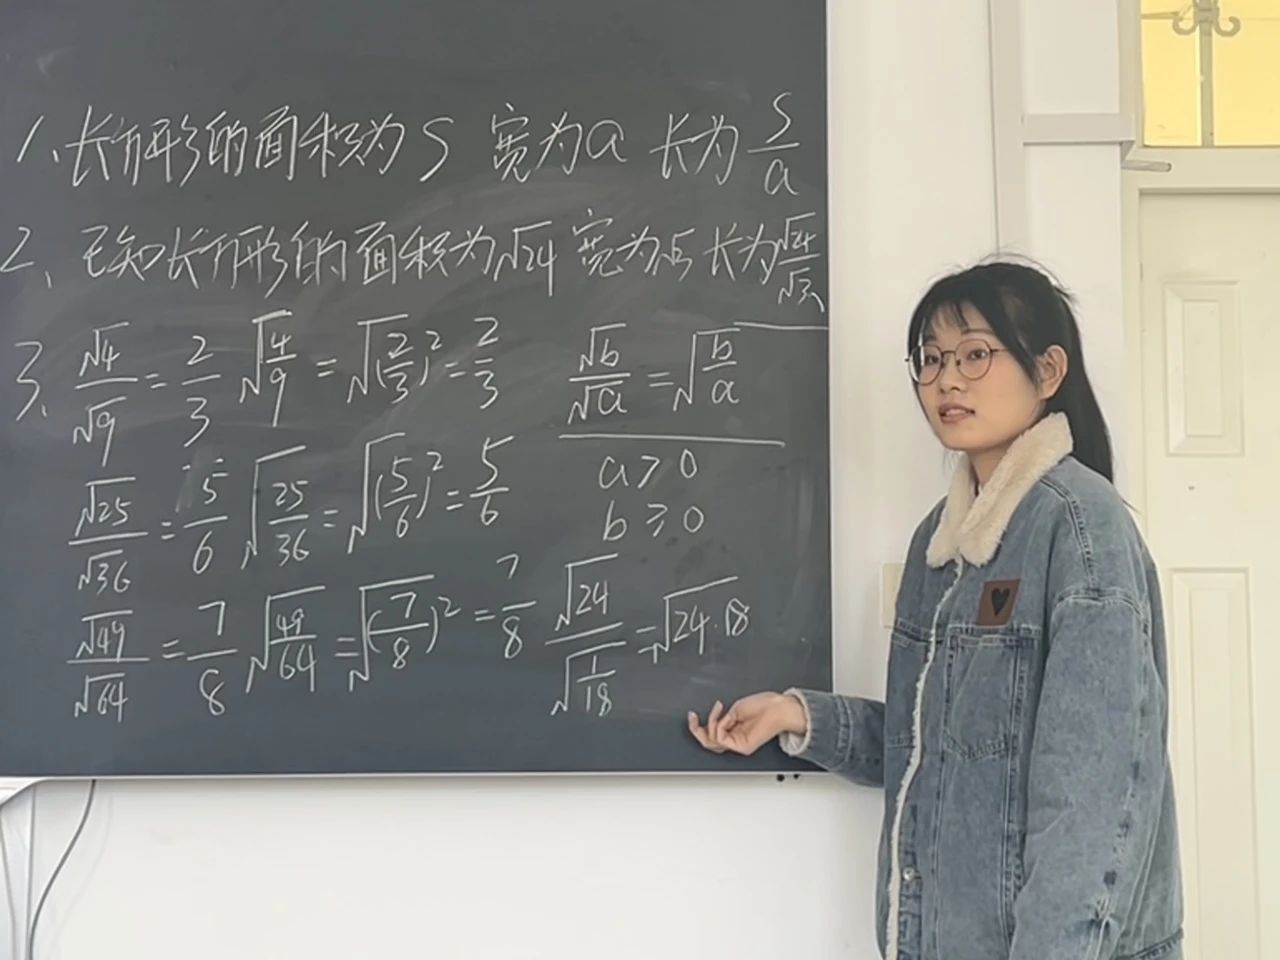 1、长方形的面积为S 宽为a 长为S/a
2、已知长方形的面积为√24 宽为 长为√24/√3
3、√4/√9=2/3 √(4/9)=√(2/3)²=2/3 √b/√a=√(b/a)
a>0
√25/√36=5/6 √(25/36)=√(5/6)²=5/6
b≥0
√49/√64=7/8 √(49/64)=√(7/8)²=7/8 √24/√(1/18)=√(24·18)